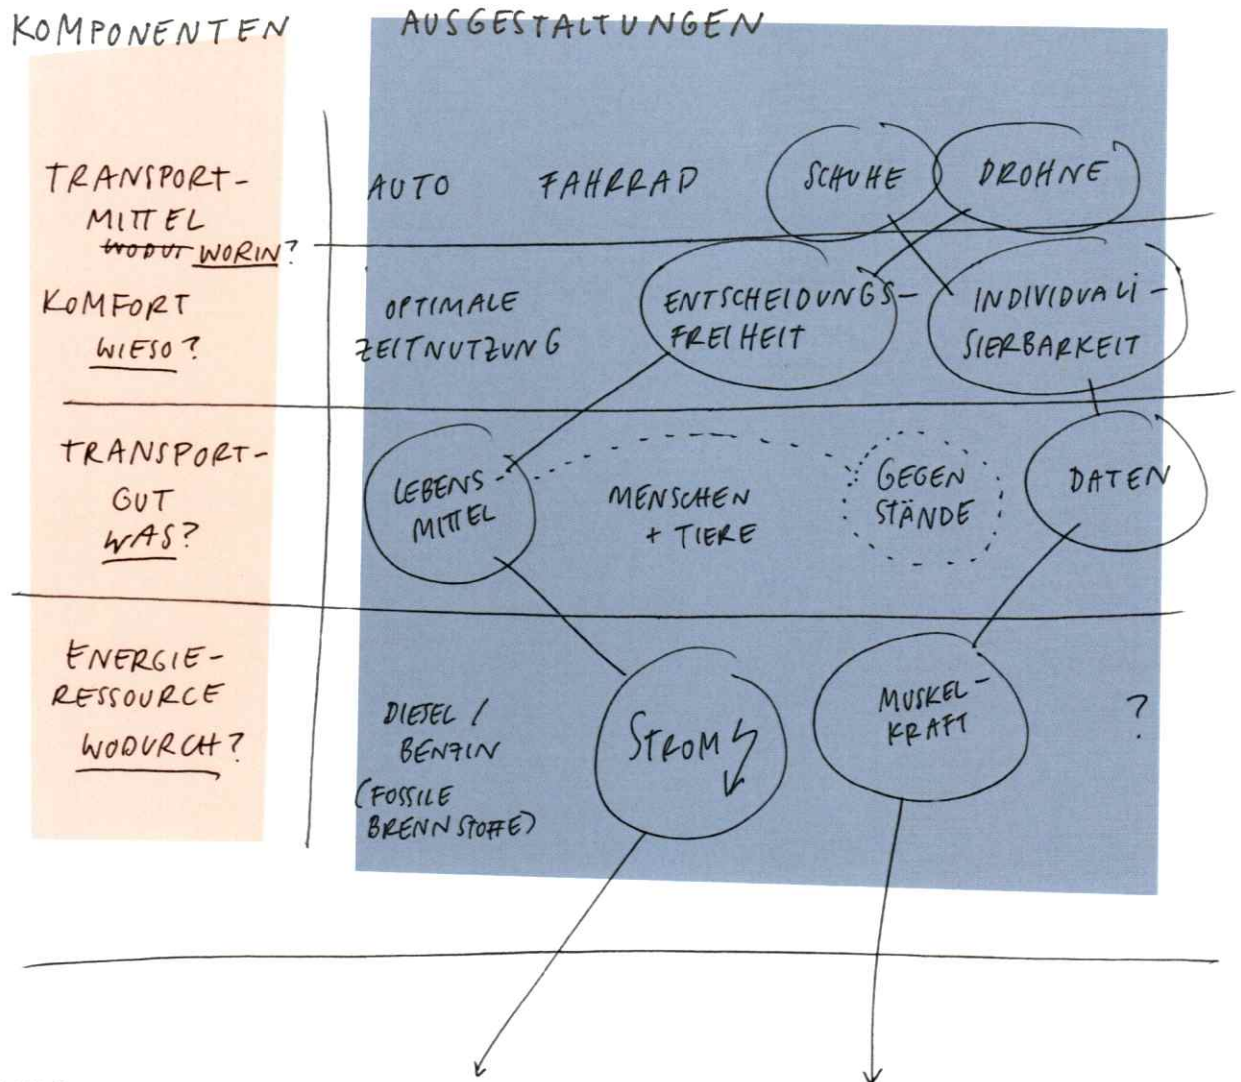 KOMPONENTEN
AUSGESTALTUNGEN
TRANSPORT-
MITTEL
WODUR WORIN?
AUTO
FAHRRAD
SCHUHE
DROHNE
KOMFORT
WIESO?
OPTIMALE
ZEITNUTZUNG
ENTSCHEIDUNGS-
FREIHEIT
INDIVIDUALI-
SIERBARKEIT
TRANSPORT-
GUT
WAS?
LEBENS-
MITTEL
MENSCHEN
+ TIERE
GEGEN
STÄNDE
DATEN
ENERGIE-
RESSOURCE
WODURCH?
DIESEL /
BENZIN
(FOSSILE
BRENNSTOFFE)
STROM
MUSKEL-
KRAFT
?